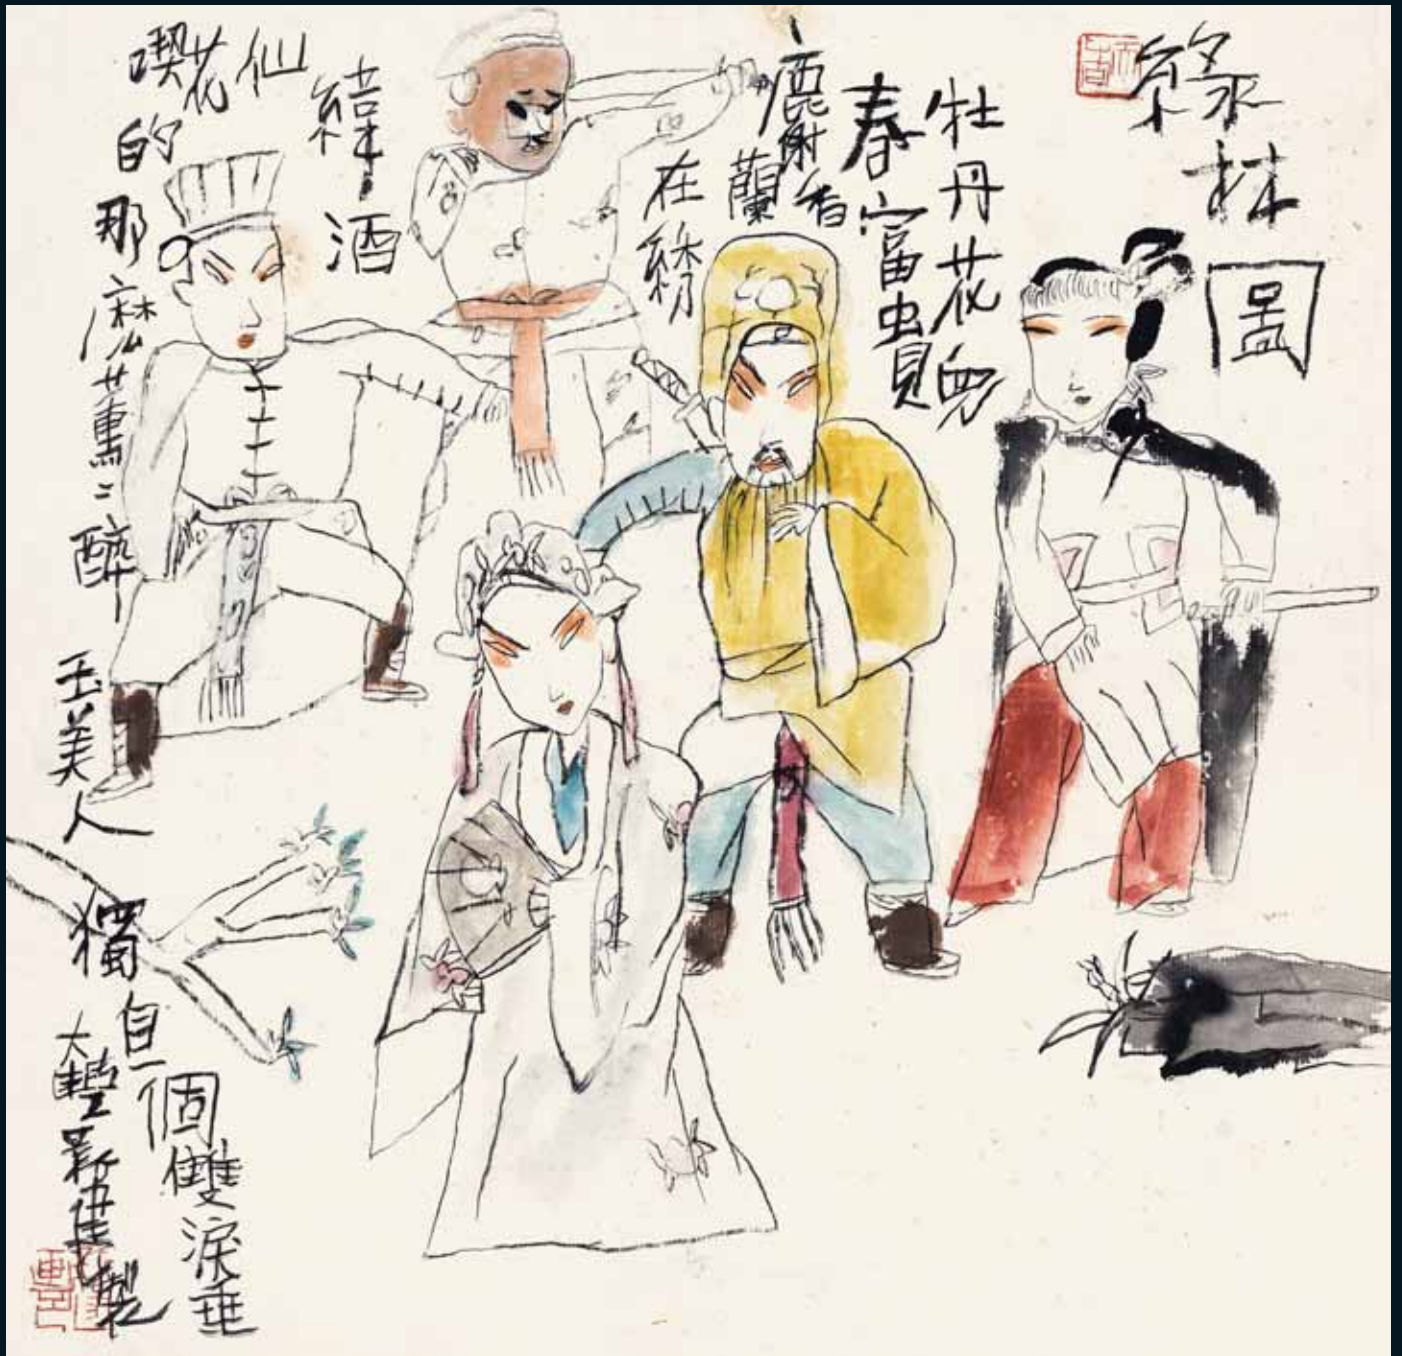 綠林圖
牡丹花兒
春富貴
麝香
蘭
在綉
緯酒
仙
花
喫的那麽薰〻醉玉美人獨自一個雙淚垂
大豐新建製